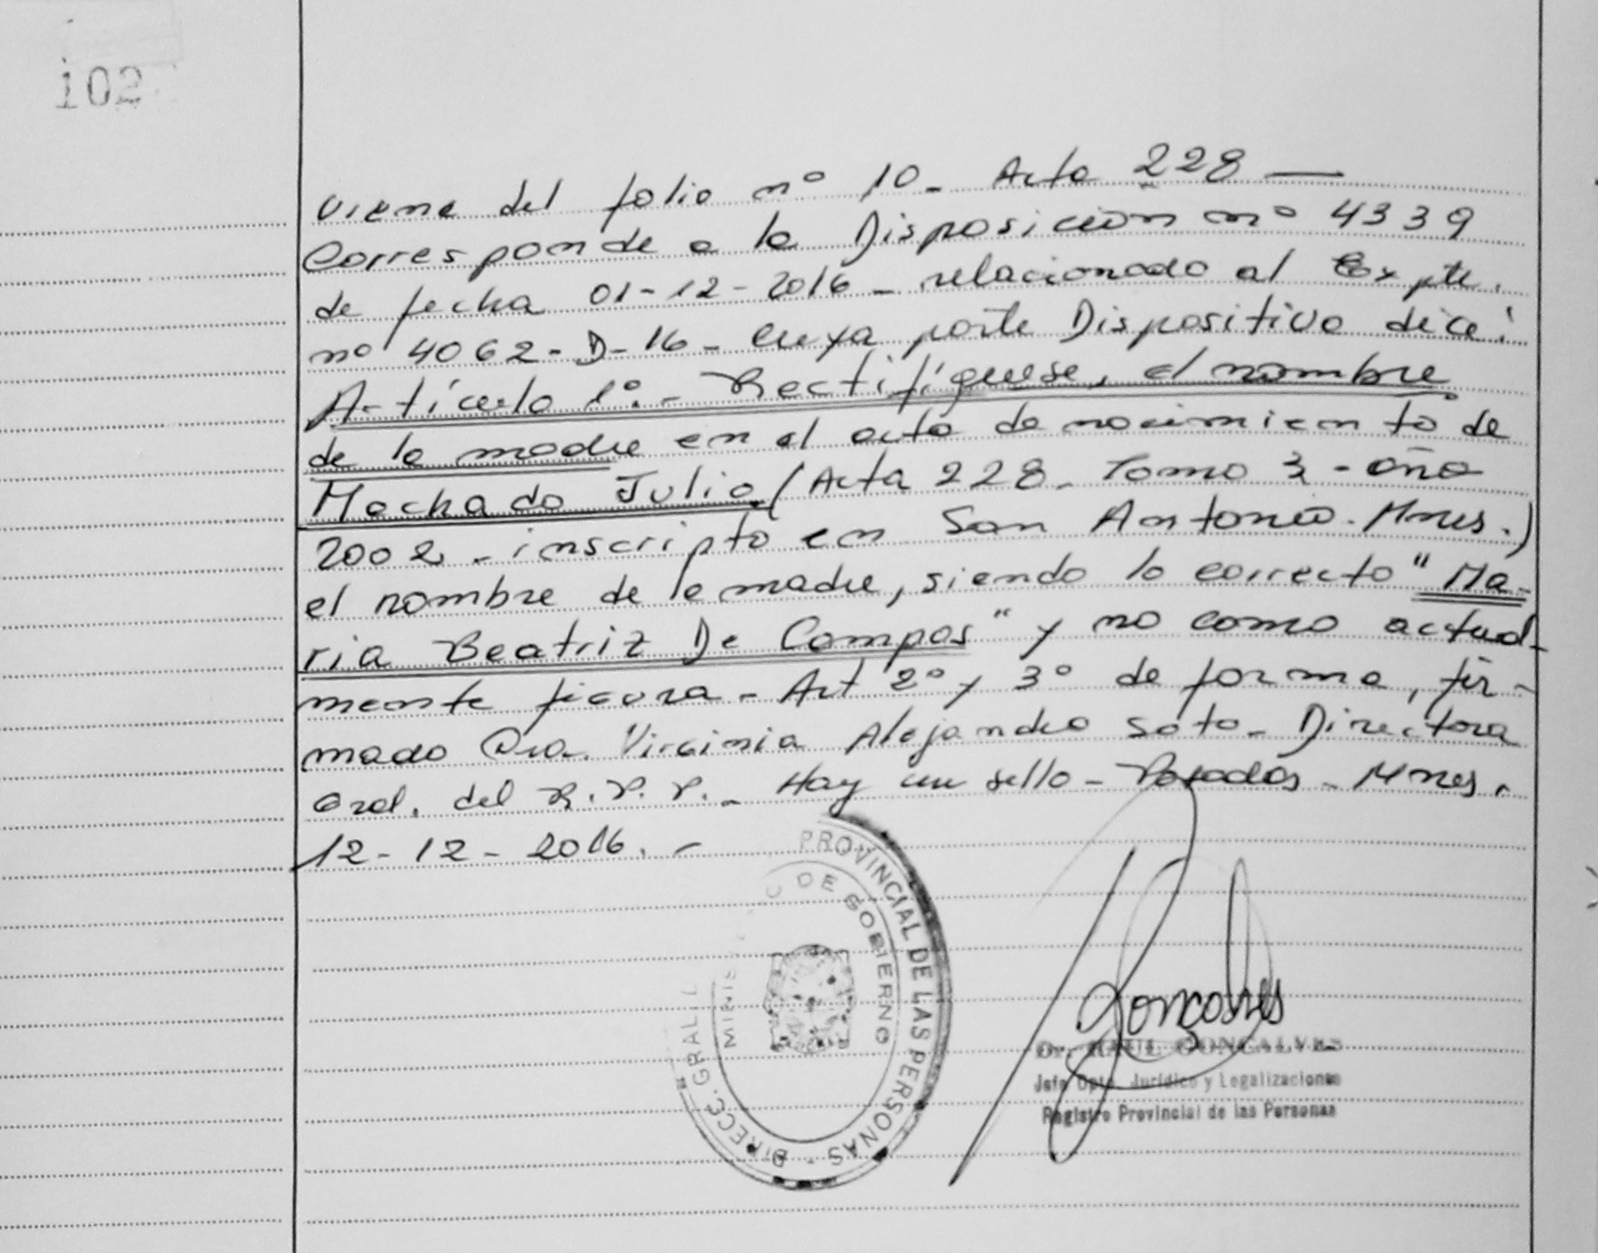 102
Viene del folio nº 10- Acta 228 —
Corresponde a la Disposición nº 4339
de fecha 01-12-2016 - relacionado al Expte.
nº 4062-D-16- cuya parte Dispositiva dice:
Artículo 1º.- Rectifíquese, el nombre
de la madre en el acta de nacimiento de
Machado Julio (Acta 228- Tomo 3 - año
2002 - inscripto en San Antonio. Mnes.)
el nombre de la madre, siendo lo correcto "Ma-
ria Beatriz De Campos" y no como actual-
mente figura - Art 2º y 3º de forma, fir-
mado Dra. Virginia Alejandra Soto - Directora
Gral. del R.P.P. - Hay un sello - Posadas - Mnes.
12-12-2016. -
DIRECC. GRAL PROVINCIAL DE LAS PERSONAS -
DE GOBIERNO
Goncalves
Dr. RAUL GONCALVES
Jefe Dpto. Jurídico y Legalizaciones
Registro Provincial de las Personas